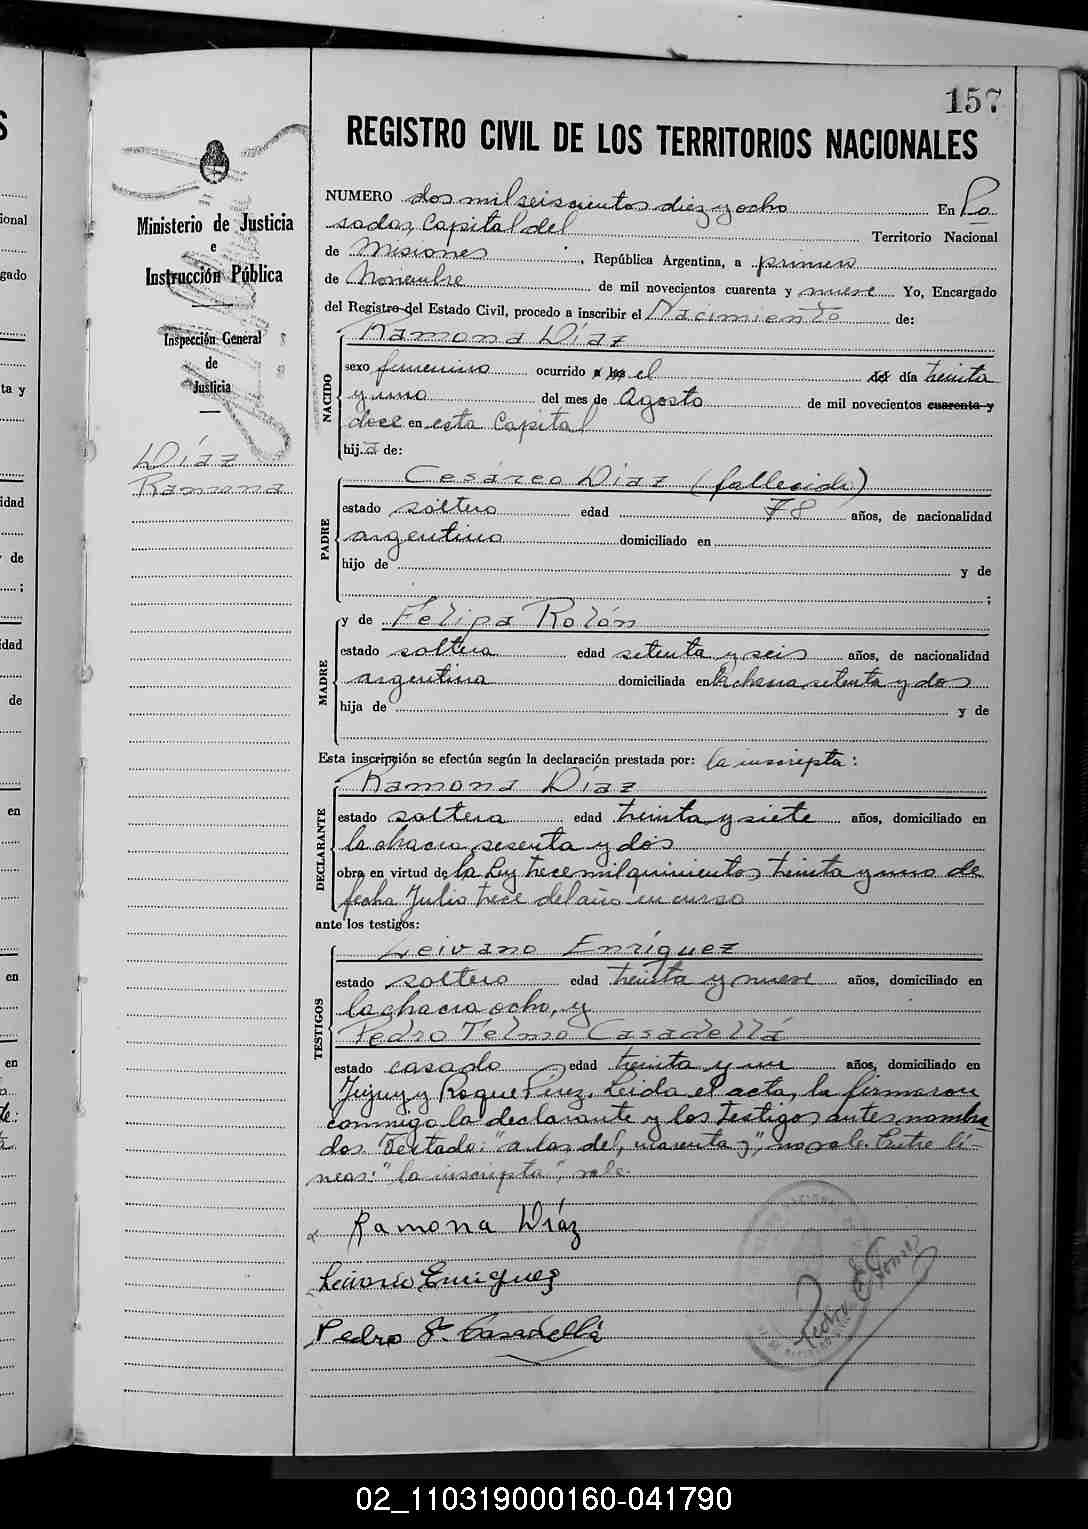 157
REGISTRO CIVIL DE LOS TERRITORIOS NACIONALES
Ministerio de Justicia
e
Instrucción Pública
Inspección General
de
Justicia
Díaz
Ramona
NUMERO dos mil seiscientos diez y ocho En Po
sadas, Capital del Territorio Nacional
de Misiones, República Argentina, a primero
de Noviembre de mil novecientos cuarenta y nueve Yo, Encargado
del Registro del Estado Civil, procedo a inscribir el Nacimiento de:
NACIDO
Ramona Díaz
sexo femenino ocurrido a las el del día treinta
y uno del mes de Agosto de mil novecientos cuarenta y
doce en esta Capital
hija de:
PADRE
Cesáreo Díaz (fallecido)
estado soltero edad 78 años, de nacionalidad
argentino domiciliado en
hijo de y de
;
MADRE
y de Felipa Rolón
estado soltera edad setenta y seis años, de nacionalidad
argentina domiciliada en la chacra setenta y dos
hija de y de
Esta inscripción se efectúa según la declaración prestada por: la inscripta:
DECLARANTE
Ramona Díaz
estado soltera edad treinta y siete años, domiciliado en
la chacra sesenta y dos
obra en virtud de la Ley trece mil quinientos treinta y uno de
fecha Julio trece del año en curso
ante los testigos:
TESTIGOS
Leivano Enríquez
estado soltero edad treinta y nueve años, domiciliado en
la chacra ocho, y
Pedro Telmo Casadellá
estado casado edad treinta y un años, domiciliado en
Jujuy y Roque Perez. Leida el acta, la firmaron
conmigo la declarante y los testigos antes nombra
dos. Testado: "a las, del, cuarenta y", no vale. Entre lí-
neas: "la inscripta", vale.
Ramona Díaz
Leivano Enriquez
Pedro T. Casadellá
Pedro E. Gomez
02_110319000160-041790